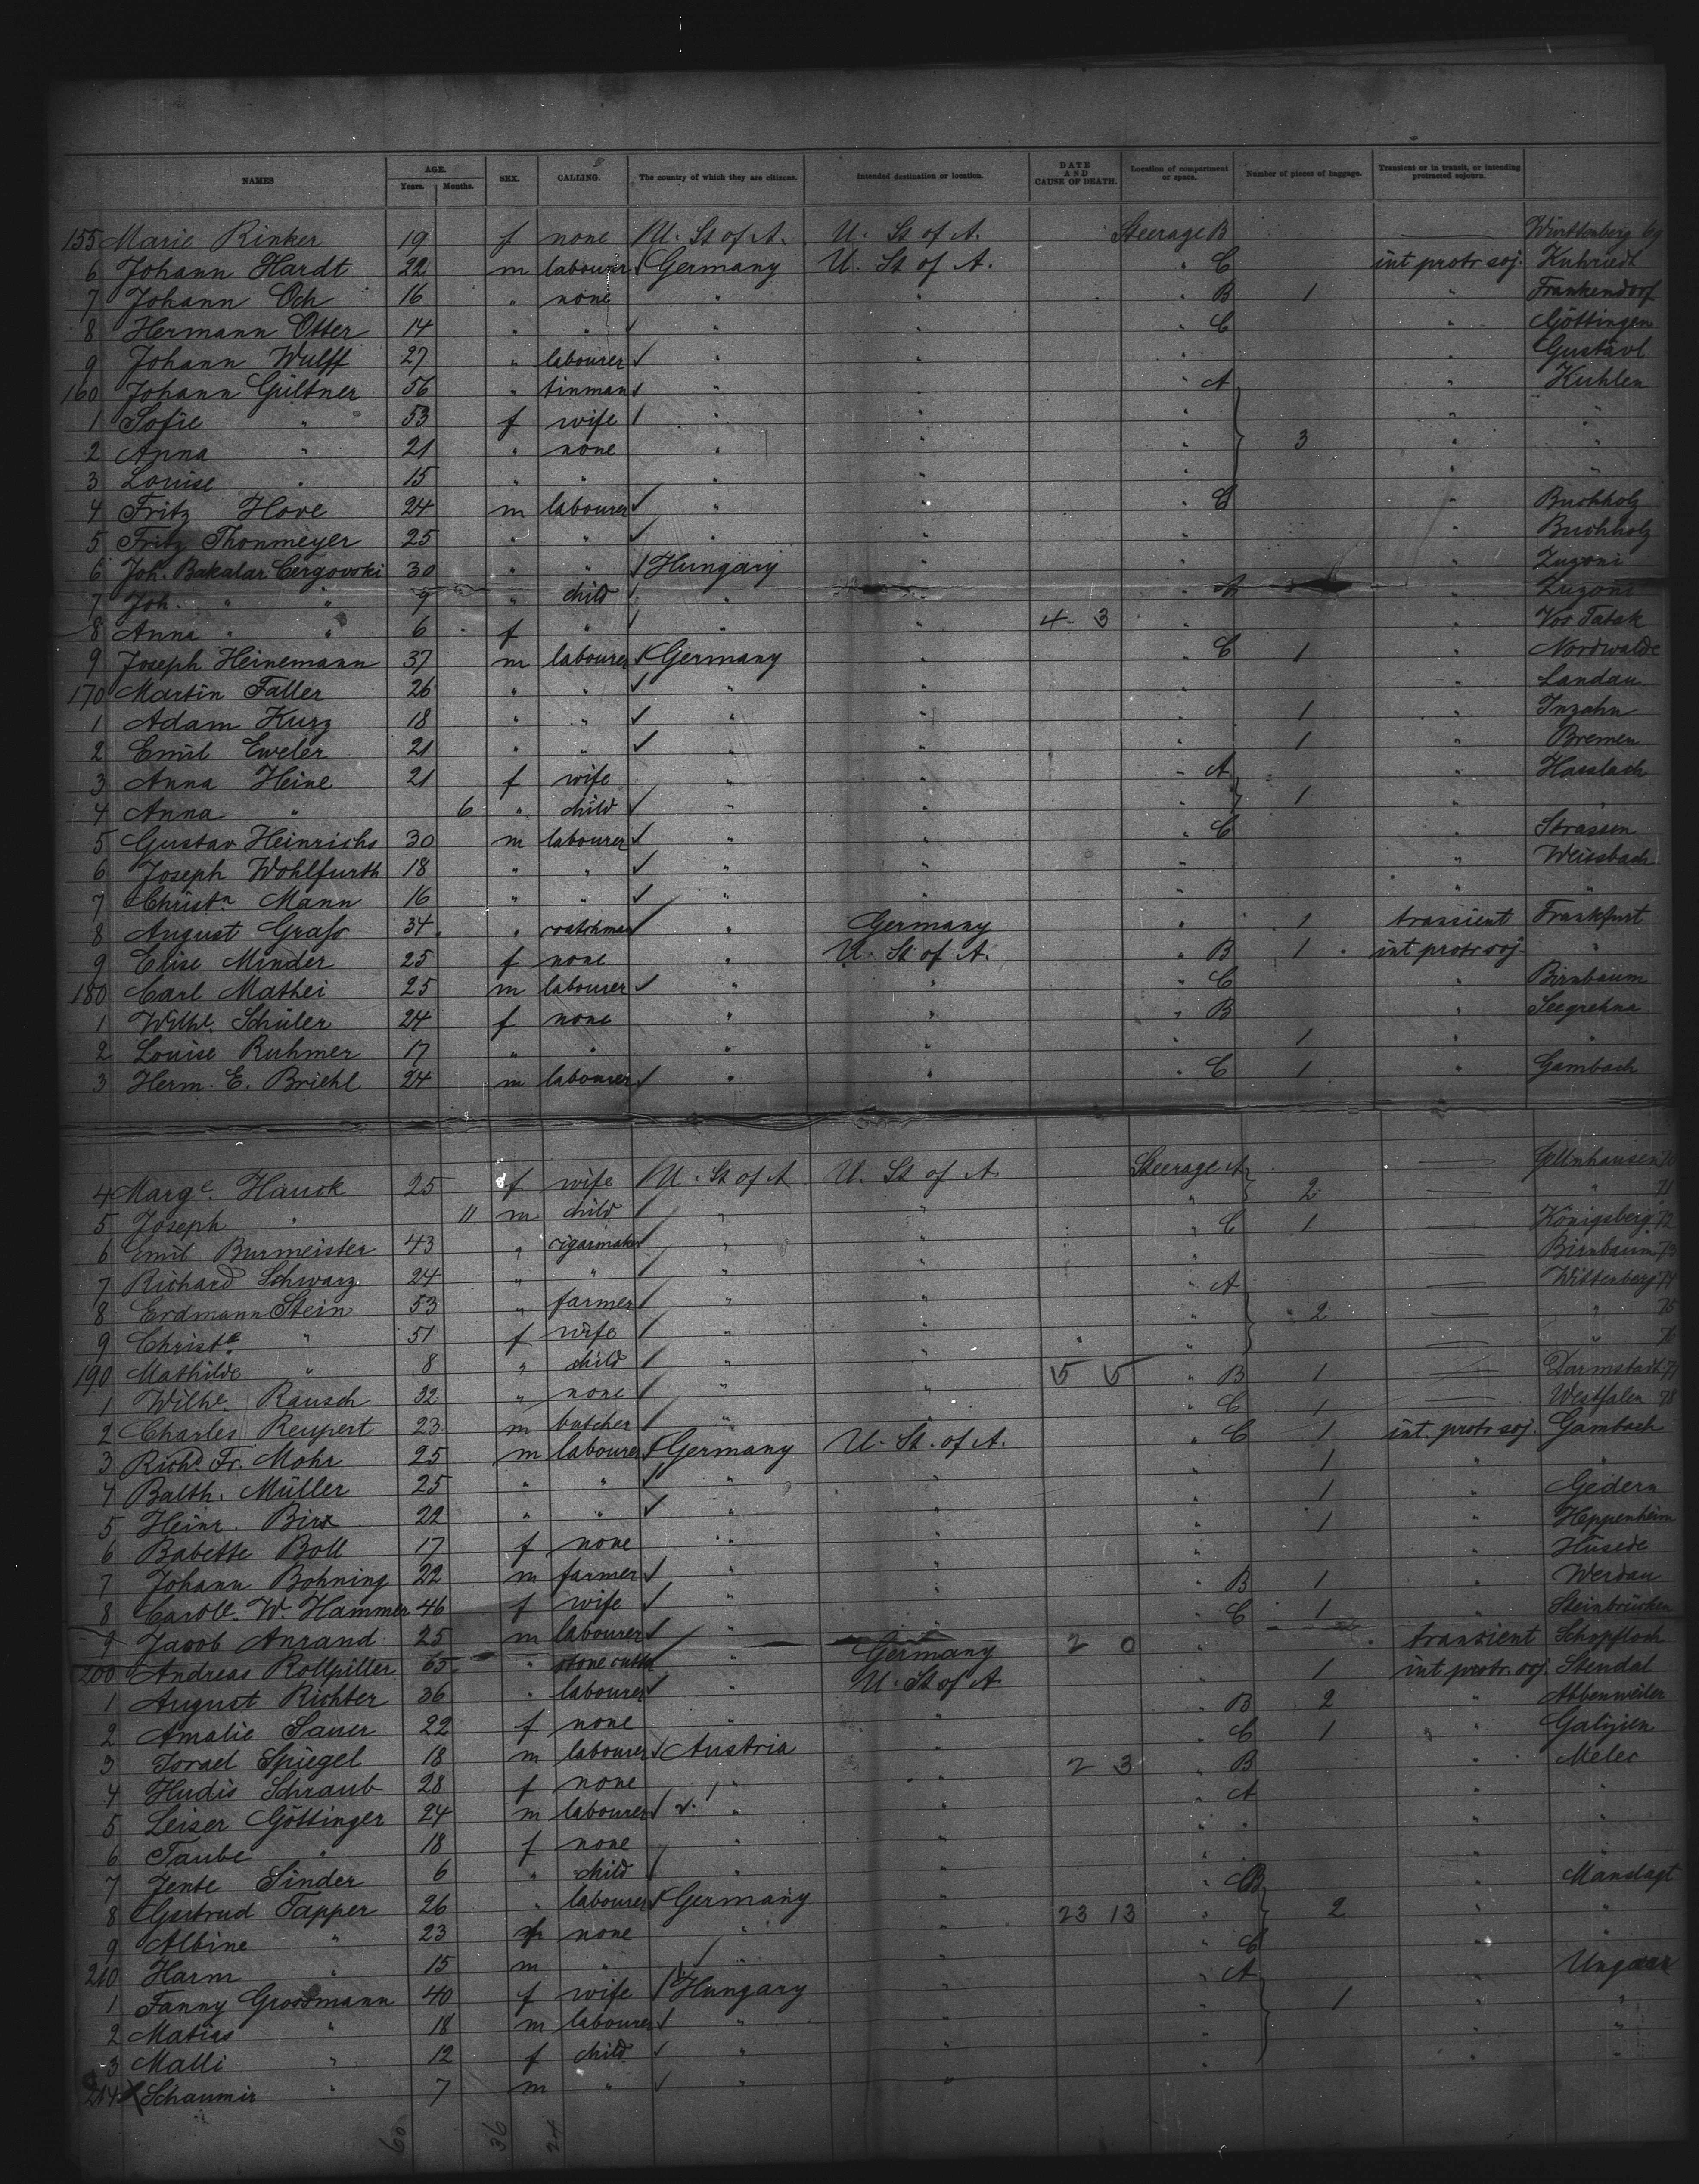 NAMES AGE. Years. Months. SEX. CALLING. The country of which they are citizens. Intended destination or location. DATE AND CAUSE OF DEATH. Location of compartment or space. Number of pieces of baggage. Transient or in transit, or intending protracted sojourn.
155 Marie Rinker 19 f none U. St of A. U. St of A. Steerage B — Württenberg 69
6 Johann Hardt 22 m labourer Germany U. St of A. " C int protr soj. Kuhriedt
7 Johann Och 16 " none " " " B 1 " Frankendorf
8 Hermann Otter 14 " " " " " C " Göttingen
9 Johann Wulff 27 " labourer " " " " Gustävl
160 Johann Gültner 56 " tinman " " " A " Kuhlen
1 Sofie " 53 f wife " " " " "
2 Anna " 21 " none " " " 3 " "
3 Louise " 15 " " " " " " "
4 Fritz Hove 24 m labourer " " " C " Buchholz
5 Fritz Thonmeyer 25 " " " " " " Buchholz
6 Joh. Bakalar Cergovski 30 " " Hungary " " " Zugoni
7 Joh. " " 9 " child " " " A " Zugoni
8 Anna " " 6 f " " " 4 - 3 " " Vor Tatak
9 Joseph Heinemann 37 m labourer Germany " " C 1 " Nordwalde
170 Martin Faller 26 " " " " " " Landau
1 Adam Kurz 18 " " " " " 1 " Inzahn
2 Emil Eweler 21 " " " " " 1 " Bremen
3 Anna Heine 21 f wife " " " A " Haslach
4 Anna " 6 " child " " " 1 " "
5 Gustav Heinrichs 30 m labourer " " " C " Strassen
6 Joseph Wohlfurth 18 " " " " " " Weissbach
7 Christn Mann 16 " " " " " " "
8 August Grafs 34 " watchman " Germany " 1 transient Frankfurt
9 Elise Minder 25 f none " U. St of A. " B 1 int protr soj "
180 Carl Mathei 25 m labourer " " " C " Birnbaum
1 Wilhe. Schüler 24 f none " " " B " Seegrehna
2 Louise Ruhmer 17 " " " " 1 " "
3 Herm. E. Briehl 24 m labourer " " " C 1 " Gambach
4 Marge. Hauck 25 f wife U. St of A U. St of A. Steerage A — Gellnhausen 70
5 Joseph " 11 m child " " " 2 — " 71
6 Emil Burmeister 43 " cigarmaker " " " C 1 — Königsberg 72
7 Richard Schwarz 24 " " " " — Birnbaum 73
8 Erdmann Stein 53 " farmer " " " A — Wittenberg 74
9 Christe. " 51 f wife " " " 2 — " 75
190 Mathilde " 8 " child " " " — " 76
1 Wilhe. Rausch 32 " none " " 5 5 " B 1 — Darmstadt 77
2 Charles Reupert 23 m butcher " " " C 1 — Westfalen 78
3 Richd Fr. Mohr 25 m labourer Germany U. St. of A. " C 1 int. protr soj. Gambach
4 Balth. Müller 25 " " " " " 1 " "
5 Heinr. Birx 22 " " " " " 1 " Gedern
6 Babette Boll 17 f none " " " 1 " Heppenheim
7 Johann Bohning 22 m farmer " " " " Husede
8 Carole. W. Hammer 46 f wife " " " B 1 " Werdau
9 Jacob Anrand 25 m labourer " " " C 1 " Steinbrücken
200 Andreas Rollpiller 65 " stone cutter " Germany 2 0 " transient Schopfloch
1 August Richter 36 " labourer " U. St of A " 1 int protr. soj. Stendal
2 Amalie Sauer 22 f none " " " B 2 " Abbenweiler
3 Israel Spiegel 18 m labourer Austria " " C 1 " Galizien
4 Hudis Schraub 28 f none " " 2 3 " B " Melec
5 Leiser Göttinger 24 m labourer " " " A " "
6 Taube " 18 f none " " " " "
7 Jente Sinder 6 " child " " " "
8 Gertrud Tapper 26 " labourer Germany " " B " Manslagt
9 Albine " 23 f none " " 23 13 " 2 " "
210 Harm " 15 m " " " " C "
1 Fanny Grossmann 40 f wife Hungary " " A " Ungarn
2 Matias " 18 m labourer " " " 1 " "
3 Malli " 12 f child " " " " "
214 Schaumir " 7 m " " " " " "
60 36 24